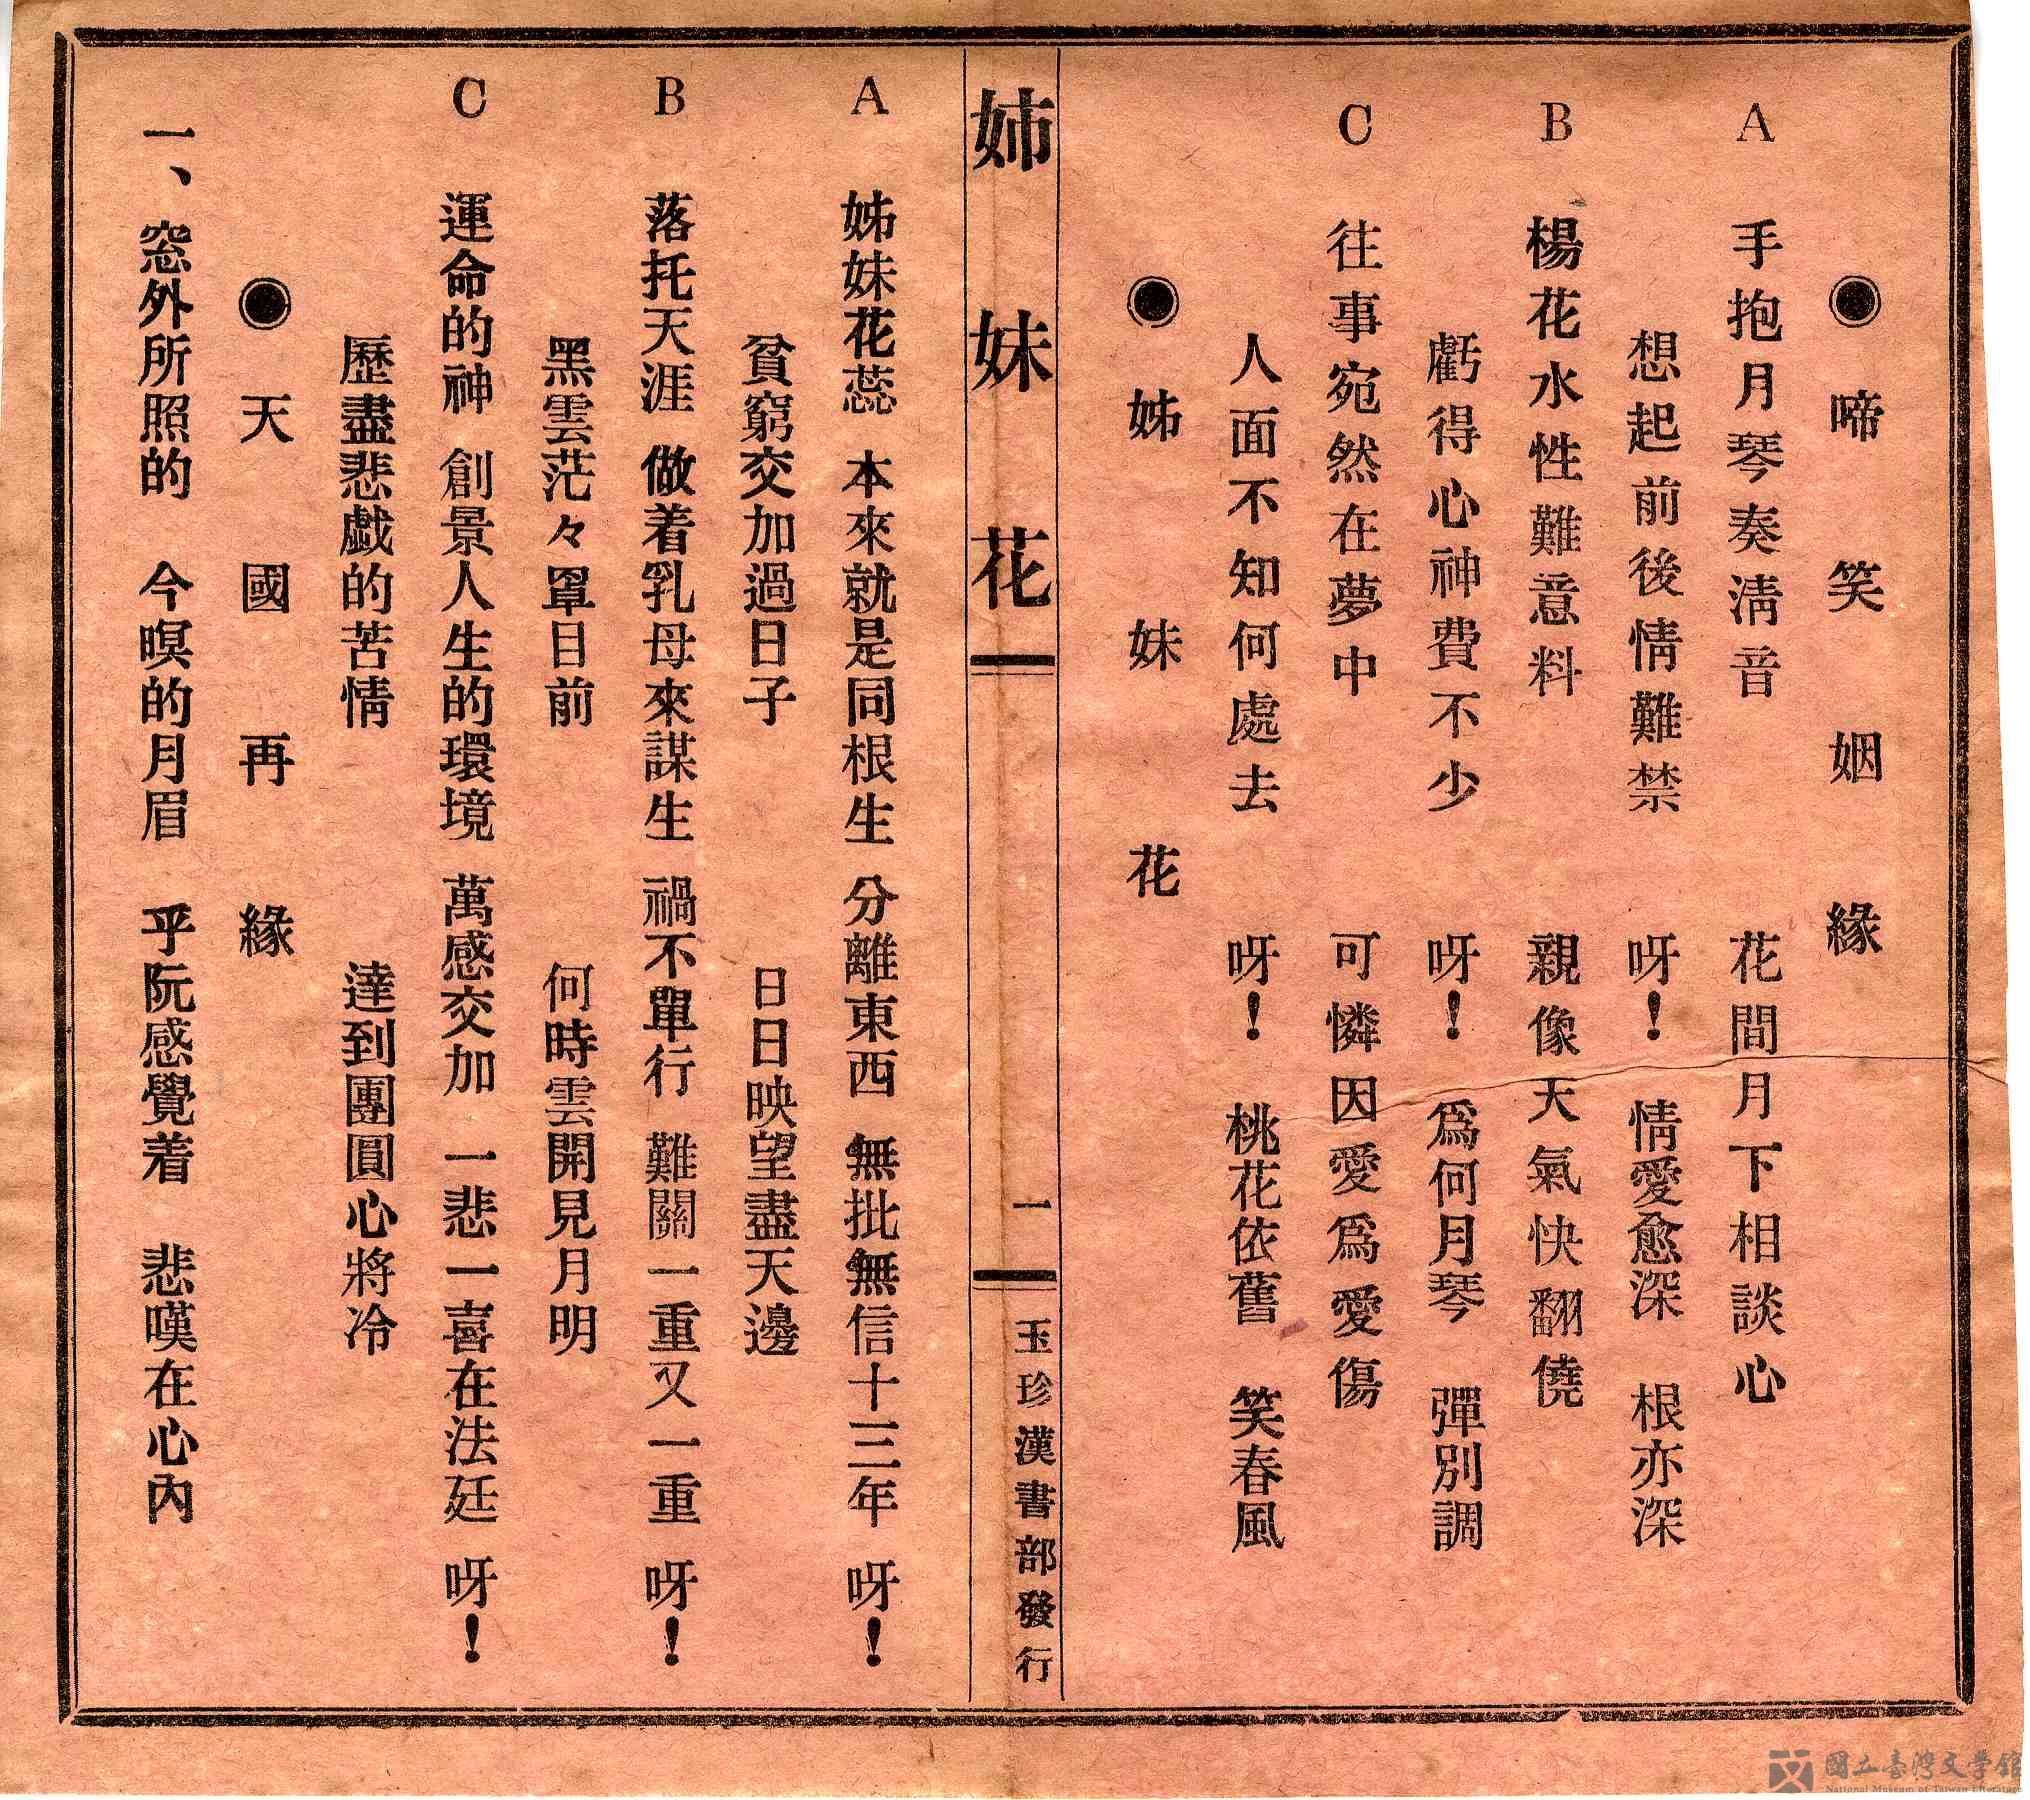 ●啼笑姻緣
A　手抱月琴奏淸音　花間月下相談心
想起前後情難禁　呀！　情愛愈深　根亦深
B　楊花水性難意料　親像天氣快翻僥
虧得心神費不少　呀！　爲何月琴　彈別調
C　往事宛然在夢中　可憐因愛爲愛傷
人面不知何處去　呀！　桃花依舊　笑春風
●姊妹花
姉妹花　一　玉珍漢書部發行
A　姊妹花蕊　本來就是同根生　分離東西　無批無信十三年　呀！
貧窮交加過日子　日日映望盡天邊
B　落托天涯　做着乳母來謀生　禍不單行　難關一重又一重　呀！
黑雲茫々罩目前　何時雲開見月明
C　運命的神　創景人生的環境　萬感交加　一悲一喜在法廷　呀！
歷盡悲戯的苦情　達到團圓心將冷
●天國再緣
一、窓外所照的　今暝的月眉　乎阮感覺着　悲嘆在心內
國立臺灣文學館
National Museum of Taiwan Literature